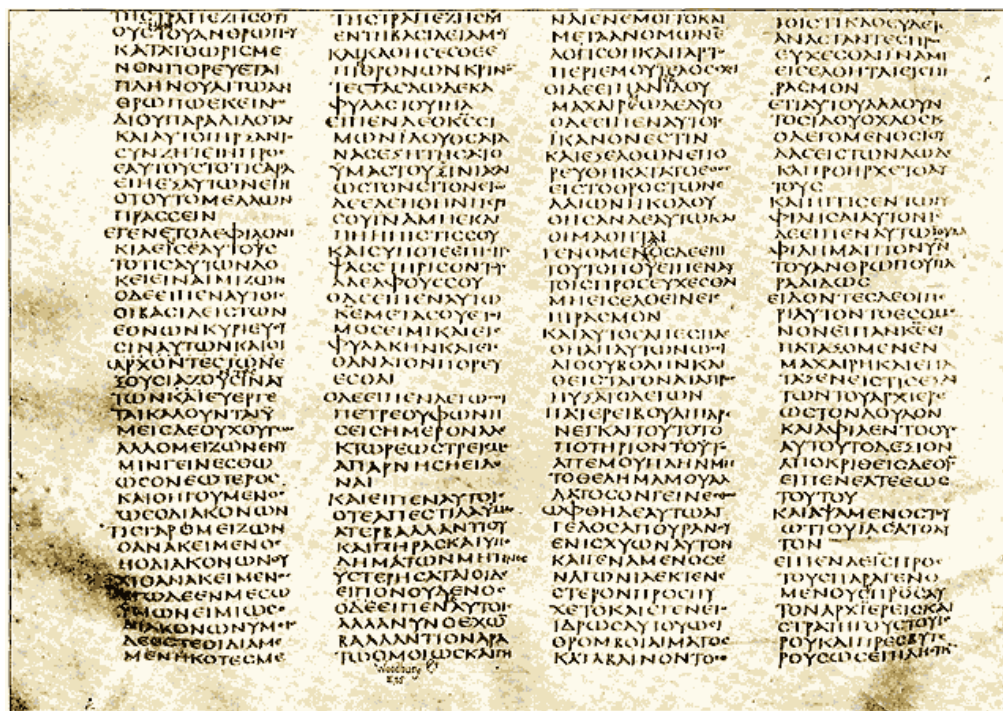 ΤΗϹΤΡΑΠΕΖΗϹΟΤΙ
ΟΥϹΤΟΥΑΝΘΡΩΠΟΥ
ΚΑΤΑΤΟΩΡΙϹΜΕ
ΝΟΝΠΟΡΕΥΕΤΑΙ
ΠΛΗΝΟΥΑΙΤΩΑΝ
ΘΡΩΠΩΕΚΕΙΝΩ
ΔΙΟΥΠΑΡΑΔΙΔΟΤΑΙ
ΚΑΙΑΥΤΟΙΗΡΞΑΝΤΟ
ΣΥΝΖΗΤΙΝΠΡΟϹ
ΕΑΥΤΟΥϹΤΟΤΙϹΑΡΑ
ΕΙΗΕΞΑΥΤΩΝΕΙΗ
ΟΤΟΥΤΟΜΕΛΛΩΝ
ΠΡΑϹϹΕΙΝ
ΕΓΕΝΕΤΟΔΕΦΙΛΟΝΙ
ΚΙΑΕΙϹΕΑΥΤΟΥϹ
ΤΟΤΙϹΑΥΤΩΝΔΟ
ΚΕΙΕΙΝΑΙΜΙΖΩΝ
ΟΔΕΕΙΠΕΝΑΥΤΟΙϹ
ΟΙΒΑϹΙΛΕΙϹΤΩΝ
ΕΘΝΩΝΚΥΡΙΕΥΟΥ
ϹΙΝΑΥΤΩΝΚΑΙΟΙ
ΑΡΧΟΝΤΕϹΤΩΝΕ
ΞΟΥϹΙΑΖΟΥϹΙΝΑΥ
ΤΩΝΚΑΙΕΥΕΡΓΕ
ΤΑΙΚΑΛΟΥΝΤΑΙΥ
ΜΕΙϹΔΕΟΥΧΟΥΤΩϹ
ΑΛΛΟΜΕΙΖΩΝΕΝΥ
ΜΙΝΓΕΙΝΕϹΘΩ
ΩϹΟΝΕΩΤΕΡΟϹ
ΚΑΙΟΗΓΟΥΜΕΝΟϹ
ΩϹΟΔΙΑΚΟΝΩΝ
ΤΙϹΓΑΡΟΜΕΙΖΩΝ
ΟΑΝΑΚΕΙΜΕΝΟϹ
ΗΟΔΙΑΚΟΝΩΝΟΥ
ΧΙΟΑΝΑΚΕΙΜΕΝΟϹ
ΕΓΩΔΕΕΝΜΕϹΩ
ΥΜΩΝΕΙΜΙΩϹΟ
ΔΙΑΚΟΝΩΝΥΜΕΙϹ
ΔΕΕϹΤΕΟΙΔΙΑΜΕ
ΜΕΝΗΚΟΤΕϹΜΕ
ΤΗϹΤΡΑΠΕΖΗϹΜΟΥ
ΕΝΤΗΒΑϹΙΛΕΙΑΜΟΥ
ΚΑΙΚΑΘΗϹΕϹΘΕΕ
ΠΙΘΡΟΝΩΝΚΡΙΝΟ
ΤΕϹΤΑϹΔΩΔΕΚΑ
ΦΥΛΑϹΤΟΥΙΗΛ
ΕΙΠΕΝΔΕΟΚϹϹΙ
ΜΩΝΙΔΟΥΟϹΑΤΑ
ΝΑϹΕΞΗΤΗϹΑΤΟ
ΥΜΑϹΤΟΥϹΙΝΙΑϹΑΙ
ΩϹΤΟΝϹΙΤΟΝΕΓΩ
ΔΕΕΔΕΗΘΗΝΠΕΡΙ
ϹΟΥΙΝΑΜΗΕΚΛΙΠΗ
ΗΠΙϹΤΙϹϹΟΥ
ΚΑΙϹΥΠΟΤΕΕΠΙϹΤΡΕ
ΨΑϹϹΤΗΡΙϹΟΝΤΟΥϹ
ΑΔΕΛΦΟΥϹϹΟΥ
ΟΔΕΕΙΠΕΝΑΥΤΩ
ΚΕΜΕΤΑϹΟΥΕΤΟΙ
ΜΟϹΕΙΜΙΚΑΙΕΙϹ
ΦΥΛΑΚΗΝΚΑΙΕΙϹ
ΘΑΝΑΤΟΝΠΟΡΕΥ
ΕϹΘΑΙ
ΟΔΕΕΙΠΕΝΛΕΓΩϹΟΙ
ΠΕΤΡΕΟΥΦΩΝΗ
ϹΕΙϹΗΜΕΡΟΝΑΛΕ
ΚΤΩΡΕΩϹΤΡΕΙϹΜΕ
ΑΠΑΡΝΗϹΗΕΙΔΕ
ΝΑΙ
ΚΑΙΕΙΠΕΝΑΥΤΟΙϹ
ΟΤΕΑΠΕϹΤΙΛΑΥΜΑϹ
ΑΤΕΡΒΑΛΛΑΝΤΙΟΥ
ΚΑΙΠΗΡΑϹΚΑΙΥΠΟ
ΔΗΜΑΤΩΝΜΗΤΙΝΟϹ
ΥϹΤΕΡΗϹΑΤΑΙΟΙΔΕ
ΕΙΠΟΝΟΥΔΕΝΟϹ
ΟΔΕΕΙΠΕΝΑΥΤΟΙϹ
ΑΛΛΑΝΥΝΟΕΧΩ
ΒΑΛΛΑΝΤΙΟΝΑΡΑ
ΤΩΟΜΟΙΩϹΚΑΙΠΗ
ΝΑΙΕΝΕΜΟΙΤΟΚΑΙ
ΜΕΤΑΑΝΟΜΩΝΕ
ΛΟΓΙϹΘΗΚΑΙΓΑΡΤΟ
ΠΕΡΙΕΜΟΥΤΕΛΟϹΕΧΙ
ΟΙΔΕΕΙΠΑΝΙΔΟΥ
ΜΑΧΑΙΡΕΩΔΕΔΥΟ
ΟΔΕΕΙΠΕΝΑΥΤΟΙϹ
ΙΚΑΝΟΝΕϹΤΙΝ
ΚΑΙΕΞΕΛΘΩΝΕΠΟ
ΡΕΥΘΗΚΑΤΑΤΟΕΘΟϹ
ΕΙϹΤΟΟΡΟϹΤΩΝΕ
ΛΑΙΩΝΗΚΟΛΟΥ
ΘΗϹΑΝΔΕΑΥΤΩΚΑΙ
ΟΙΜΑΘΗΤΑΙ
ΓΕΝΟΜΕΝΟϹΔΕΕΠΙ
ΤΟΥΤΟΠΟΥΕΙΠΕΝΑΥ
ΤΟΙϹΠΡΟϹΕΥΧΕϹΘΑΙ
ΜΗΕΙϹΕΛΘΕΙΝΕΙϹ
ΠΙΡΑϹΜΟΝ
ΚΑΙΑΥΤΟϹΑΠΕϹΠΑ
ϹΘΗΑΠΑΥΤΩΝΩϹΕΙ
ΛΙΘΟΥΒΟΛΗΝΚΑΙ
ΘΕΙϹΤΑΓΟΝΑΤΑΠΡΟϹ
ΗΥΞΑΤΟΛΕΓΩΝ
ΠΑΤΕΡΕΙΒΟΥΛΕΙΠΑΡΕ
ΝΕΓΚΑΙΤΟΥΤΟΤΟ
ΠΟΤΗΡΙΟΝΤΟΥΤΟ
ΑΠΕΜΟΥΠΛΗΝΜΗ
ΤΟΘΕΛΗΜΑΜΟΥΑΛ
ΛΑΤΟϹΟΝΓΕΙΝΕϹΘΩ
ΩΦΘΗΔΕΑΥΤΩΑΓ
ΓΕΛΟϹΑΠΟΥΡΑΝΟΥ
ΕΝΙϹΧΥΩΝΑΥΤΟΝ
ΚΑΙΓΕΝΑΜΕΝΟϹΕ
ΝΑΓΩΝΙΑΕΚΤΕΝΕ
ϹΤΕΡΟΝΠΡΟϹΗΥ
ΧΕΤΟΚΑΙΕΓΕΝΕΤΟ
ΙΔΡΩϹΑΥΤΟΥΩϹΕΙ
ΘΡΟΜΒΟΙΑΙΜΑΤΟϹ
ΚΑΤΑΒΑΙΝΟΝΤΟϹ
ΑΝΑϹΤΑΝΤΕϹΠΡΟϹ
ΕΥΧΕϹΘΑΙΙΝΑΜΗ
ΕΙϹΕΛΘΗΤΑΙΕΙϹΠΙ
ΡΑϹΜΟΝ
ΕΤΙΑΥΤΟΥΛΑΛΟΥΝ
ΤΟϹΙΔΟΥΟΧΛΟϹΚΑΙ
ΟΛΕΓΟΜΕΝΟϹΙΟΥ
ΔΑϹΕΙϹΤΩΝΔΩΔΕΚΑ
ΚΑΙΠΡΟΗΡΧΕΤΟΑΥ
ΤΟΥϹ
ΚΑΙΗΓΓΙϹΕΝΤΩΙΥ
ΦΙΛΗϹΑΙΑΥΤΟΝΙϹ
ΔΕΕΙΠΕΝΑΥΤΩΙΟΥΔΑ
ΦΙΛΗΜΑΤΙΤΟΝΥΝ
ΤΟΥΑΝΘΡΩΠΟΥΠΑ
ΡΑΔΙΔΩϹ
ΕΙΔΟΝΤΕϹΔΕΟΙΠΕ
ΡΙΑΥΤΟΝΤΟΕϹΟΜΕ
ΝΟΝΕΙΠΑΝΚΕΕΙ
ΠΑΤΑΞΟΜΕΝΕΝ
ΜΑΧΑΙΡΗΚΑΙΕΠΑ
ΤΑΞΕΝΕΙϹΤΙϹΕΞΑΥ
ΤΩΝΤΟΥΑΡΧΙΕΡΕ
ΩϹΤΟΝΔΟΥΛΟΝ
ΚΑΙΑΦΙΛΕΝΤΟΟΥϹ
ΑΥΤΟΥΤΟΔΕΞΙΟΝ
ΑΠΟΚΡΙΘΕΙϹΔΕΟΙϹ
ΕΙΠΕΝΕΑΤΕΕΩϹ
ΤΟΥΤΟΥ
ΚΑΙΑΨΑΜΕΝΟϹΤΟΥ
ΩΤΙΟΥΙΑϹΑΤΟΑΥ
ΤΟΝ
ΕΙΠΕΝΔΕΙϹΠΡΟϹ
ΤΟΥϹΠΑΡΑΓΕΝΟ
ΜΕΝΟΥϹΠΡΟϹΑΥ
ΤΟΝΑΡΧΙΕΡΕΙϹΚΑΙ
ϹΤΡΑΤΗΓΟΥϹΤΟΥΙΕ
ΡΟΥΚΑΙΠΡΕϹΒΥΤΕ
ΡΟΥϹΩϹΕΠΙΛΗϹΤΗ
Woodbury